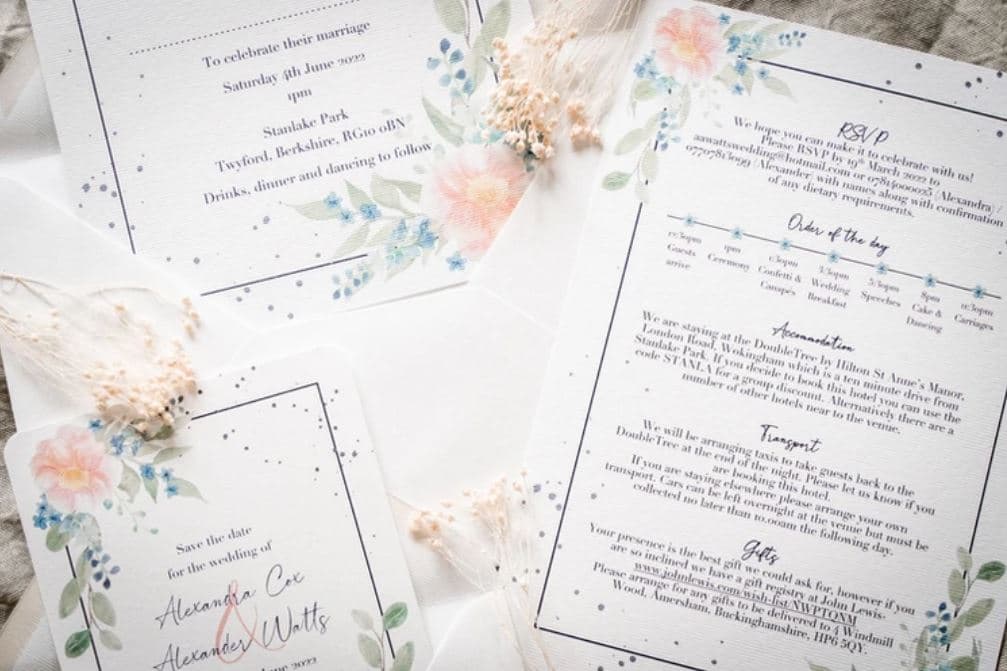 To celebrate their marriage
Saturday 4th June 2022
1pm
Stanlake Park
Twyford, Berkshire, RG10 0BN
Drinks, dinner and dancing to follow
Save the date
for the wedding of
Alexandra Cox
&
Alexander Watts
June 2022
RSVP
We hope you can make it to celebrate with us!
Please RSVP by 19th March 2022 to
aawattswedding@hotmail.com or 07814000025 (Alexandra) /
07707813099 (Alexander) with names along with confirmation
of any dietary requirements.
Order of the day
12:30pm
Guests
arrive
1pm
Ceremony
1:30pm
Confetti &
Canapés
3:30pm
Wedding
Breakfast
5:30pm
Speeches
8pm
Cake &
Dancing
12:30pm
Carriages
Accommodation
We are staying at the DoubleTree by Hilton St Anne's Manor,
London Road, Wokingham which is a ten minute drive from
Stanlake Park. If you decide to book this hotel you can use the
code STANLA for a group discount. Alternatively there are a
number of other hotels near to the venue.
Transport
We will be arranging taxis to take guests back to the
DoubleTree at the end of the night. Please let us know if you
are booking this hotel.
If you are staying elsewhere please arrange your own
transport. Cars can be left overnight at the venue but must be
collected no later than 10.00am the following day.
Gifts
Your presence is the best gift we could ask for, however if you
are so inclined we have a gift registry at John Lewis-
www.johnlewis.com/wish-list/NWPTQNM
Please arrange for any gifts to be delivered to 4 Windmill
Wood, Amersham, Buckinghamshire, HP6 5QY.